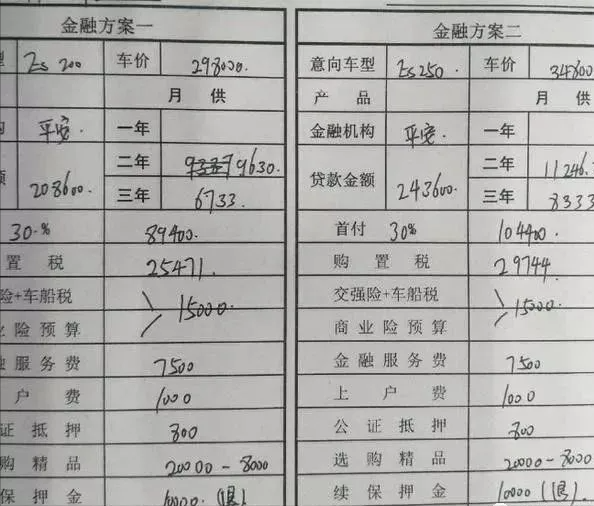 金融方案一
型 Es 200 车价 298000.
月供
构 平安. 一年
额 208600. 二年 9630.
三年 6733.
30% 89400.
置税 25471.
险+车船税 15000.
业险预算
融服务费 7500
户费 1000
证抵押 800
购精品 20000-8000
保押金 10000.(退).
金融方案二
意向车型 Es250. 车价 34800
产品 月供
金融机构 平安. 一年
贷款金额 243600. 二年 11246.
三年 8333
首付 30% 104400.
购置税 29744.
交强险+车船税 15000.
商业险预算
金融服务费 7500
上户费 1000
公证抵押 800
选购精品 20000-8000
续保押金 10000(退)